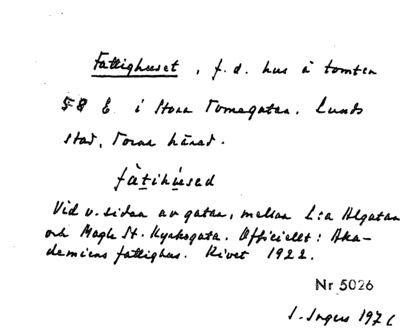 Fattighuset, f.d. hus å tomten
58 E i Stora Tomegatan. Lunds
stad, Torna härad.
fàtihùsed
Vid v. sidan av gatan, mellan L:a Algatan
och Magle St. Kyrkogata. Officiellt: Aka-
demiens fattighus. Rivet 1922.
Nr 5026
S. Ingers 1976